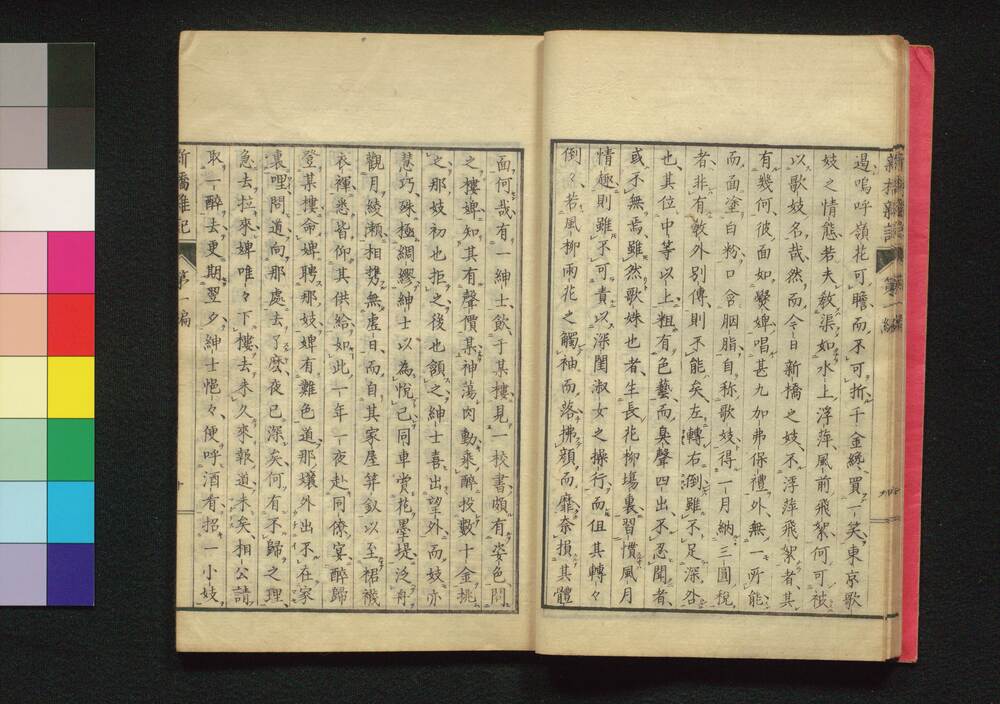 過嗚呼嶺花可瞻而不可折千金纔買一笑東京歌
妓之情態若夫敎渠如水上浮萍風前飛絮何可被
以歌妓名哉然而今日新橋之妓不浮萍飛絮者其
有幾何彼面如爨婢唱甚九加弗保禮外無一所能
而面塗白粉口含胭脂自称歌妓得一月納三圓稅
者非有敎外別傳則不能矣左轉右倒雖不足深咎
也其位中等以上粗有色藝而臭聲四出不忍聞者
或不無焉雖然歌姝也者生長花柳場裏習慣風月
情趣則雖不可責以深閨淑女之操行而但其轉々
倒々若風柳雨花之觸袖而落拂顔而靡奈損其體
面何哉有一紳士飲于某樓見一校書頗有姿色問
之樓婢知其有聲價某神蕩肉動乘醉投數十金挑
之那妓初也拒之後也頷之紳士喜出望外而妓亦
慧巧殊極綢繆紳士以為悅己同車賞花墨堤泛舟
觀月綾瀬相携無虛日而自其家屋笄釵以至裙襪
衣褌悉皆仰其供給如此一年一夜赴同僚宴醉歸
登某樓命婢聘那妓婢有難色道那孃外出不在家
裏哩問道向那處去了麽夜已深矣何有不歸之理
急去拉來婢唯々下樓去未久來報道未矣相公請
取一醉去更期翌夕紳士悒々便呼酒有招一小妓
新橋雜記 第一編 十